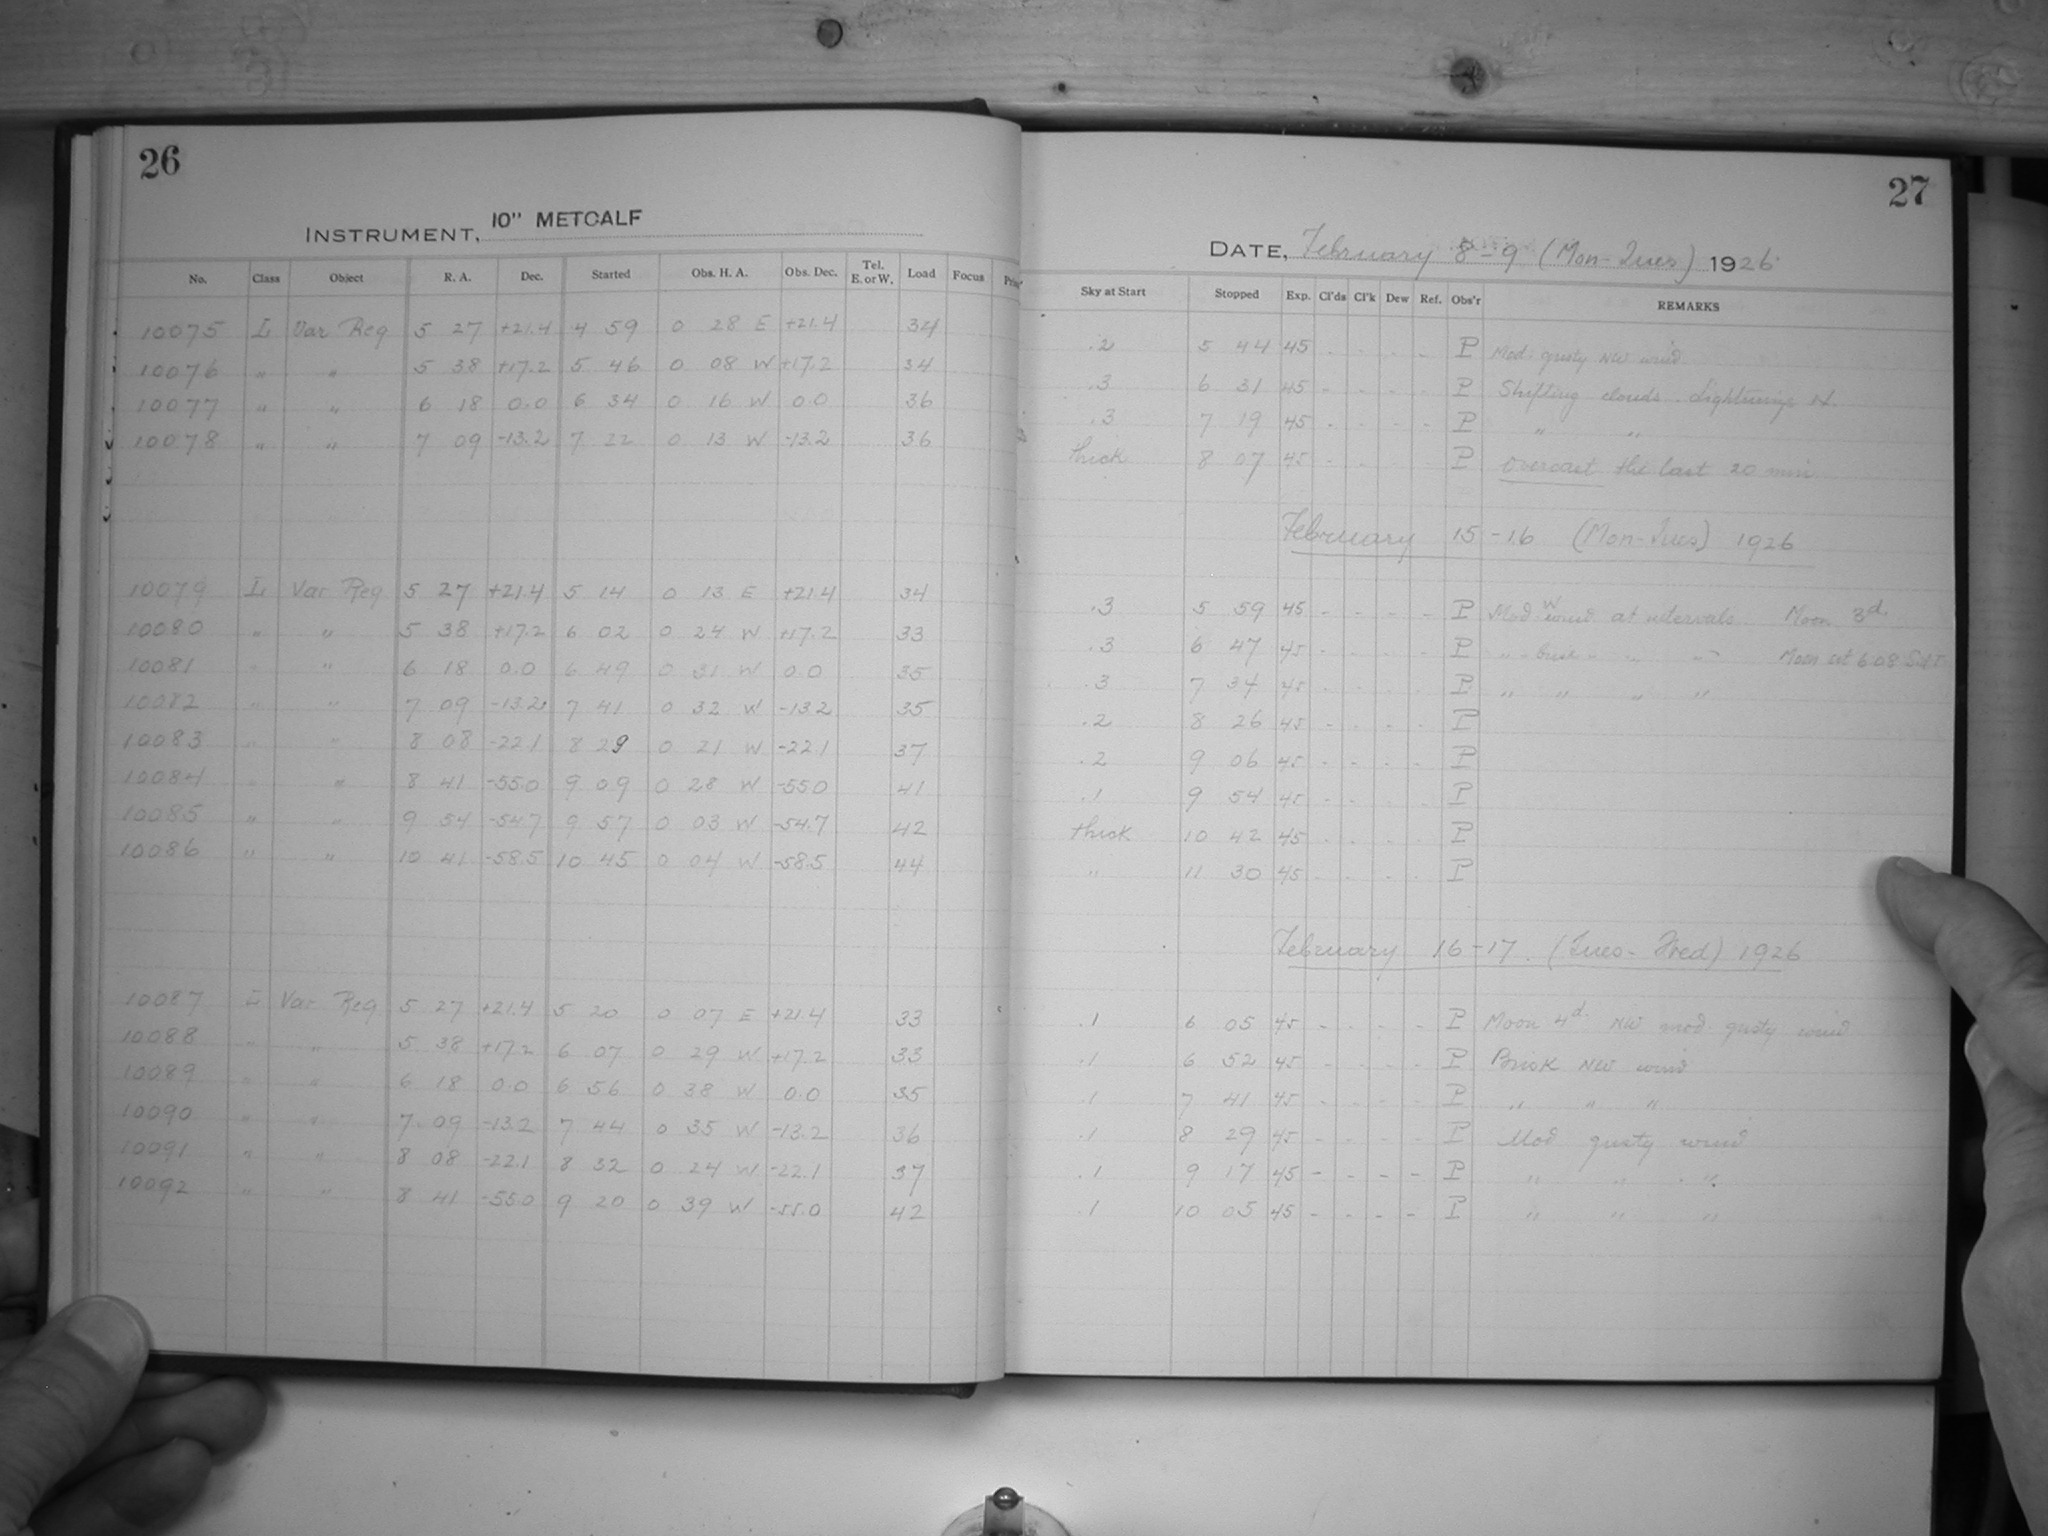 26
INSTRUMENT, 10" METCALF
No. Class Object R. A. Dec. Started Obs. H. A. Obs. Dec. Tel. E. or W. Load Focus
10075 L Var Reg 5 27 +21.4 4 59 0 28 E +21.4 34
10076 " " 5 38 +17.2 5 46 0 08 W +17.2 34
10077 " " 6 18 0.0 6 34 0 16 W 0.0 36
10078 " " 7 09 -13.2 7 22 0 13 W -13.2 36
10079 L Var Reg 5 27 +21.4 5 14 0 13 E +21.4 34
10080 " " 5 38 +17.2 6 02 0 24 W +17.2 33
10081 " " 6 18 0.0 6 49 0 31 W 0.0 35
10082 " " 7 09 -13.2 7 41 0 32 W -13.2 35
10083 " " 8 08 -22.1 8 29 0 21 W -22.1 37
10084 " " 8 41 -55.0 9 09 0 28 W -55.0 41
10085 " " 9 54 -54.7 9 57 0 03 W -54.7 42
10086 " " 10 41 -58.5 10 45 0 04 W -58.5 44
10087 L Var Reg 5 27 +21.4 5 20 0 07 E +21.4 33
10088 " " 5 38 +17.2 6 07 0 29 W +17.2 33
10089 " " 6 18 0.0 6 56 0 38 W 0.0 35
10090 " " 7 09 -13.2 7 44 0 35 W -13.2 36
10091 " " 8 08 -22.1 8 32 0 24 W -22.1 37
10092 " " 8 41 -55.0 9 20 0 39 W -55.0 42
27
DATE, February 8-9 (Mon-Tues) 1926
Sky at Start Stopped Exp. Cl'ds Cl'k Dew Ref. Obs'r REMARKS
.2 5 44 45 - - - - P Mod. gusty NW wind
.3 6 31 45 - - - - P Shifting clouds. Lightning N.
.3 7 19 45 - - - - P " "
thick 8 07 45 - - - - P Overcast the last 20 min
February 15-16 (Mon-Tues) 1926
.3 5 59 45 - - - - P Mod W wind at intervals Moon 3d.
.3 6 47 45 - - - - P " " " " Moon set 6 08
.3 7 34 45 - - - - P " " " "
.2 8 26 45 - - - - P
.2 9 06 45 - - - - P
.1 9 54 45 - - - - P
thick 10 42 45 - - - - P
" 11 30 45 - - - - P
February 16-17. (Tues-Wed) 1926
.1 6 05 45 - - - - P Moon 4d. NW mod gusty wind
.1 6 52 45 - - - - P Brisk NW wind
.1 7 41 45 - - - - P " " "
.1 8 29 45 - - - - P Mod gusty wind
.1 9 17 45 - - - - P " " "
.1 10 05 45 - - - - P " " "